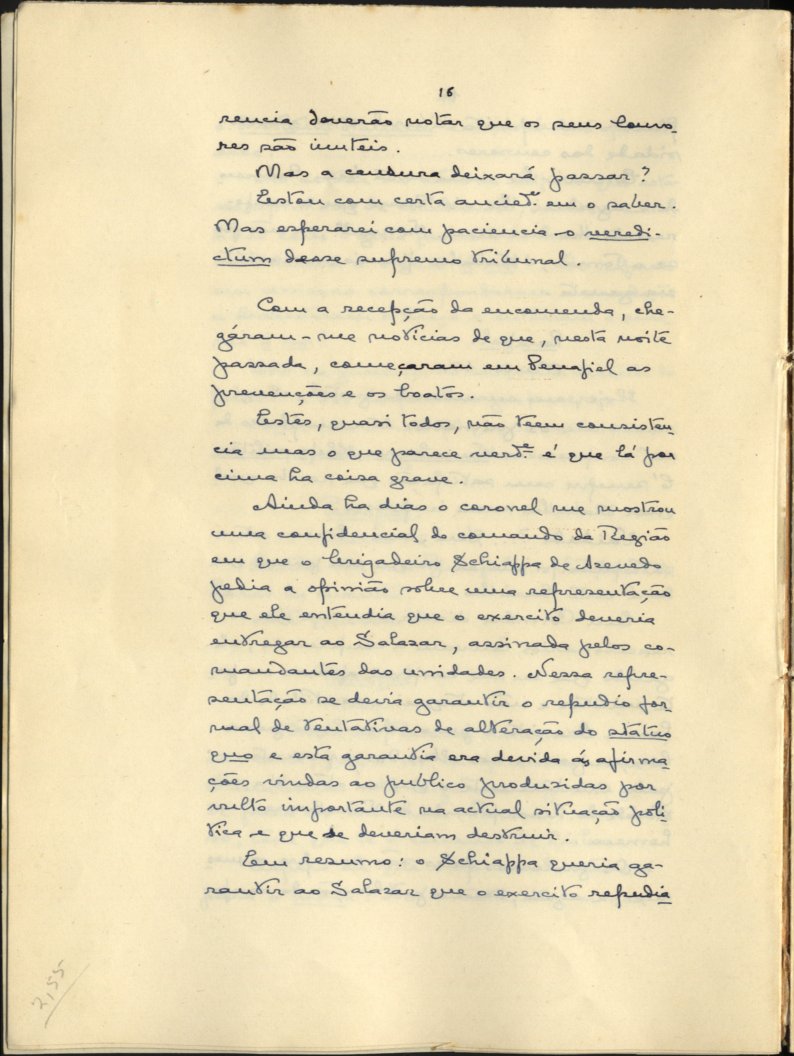 16
rencia deverão notar que os seus louvo-
res são inuteis.
Mas a censura deixará passar?
Estou com certa ancied.e em o saber.
Mas esperarei com paciencia o veredi-
ctum desse supremo tribunal.
Com a recepção da encomenda, che-
gáram-me noticias de que, nesta noite
passada, começaram em Penafiel as
prevenções e os boatos.
Estes, quasi todos, não teem consisten-
cia mas o que parece verd.e é que lá por
cima ha coisa grave.
Ainda ha dias o coronel me mostrou
uma confidencial do comando da Região
em que o brigadeiro Schiappa de Azevedo
pedia a opinião sobre uma representação
que ele entendia que o exercito deveria
entregar ao Salazar, assinada pelos co-
mandantes das unidades. Nessa repre-
sentação se devia garantir o repudio for-
mal de tentativas de alteração do status
quo e esta garantia era devida ás afirma-
ções vindas ao publico produzidas por
vulto importante na actual situação poli-
tica e que se deveriam destruir.
Em resumo: o Schiappa queria ga-
rantir ao Salazar que o exercito repudia
2,55